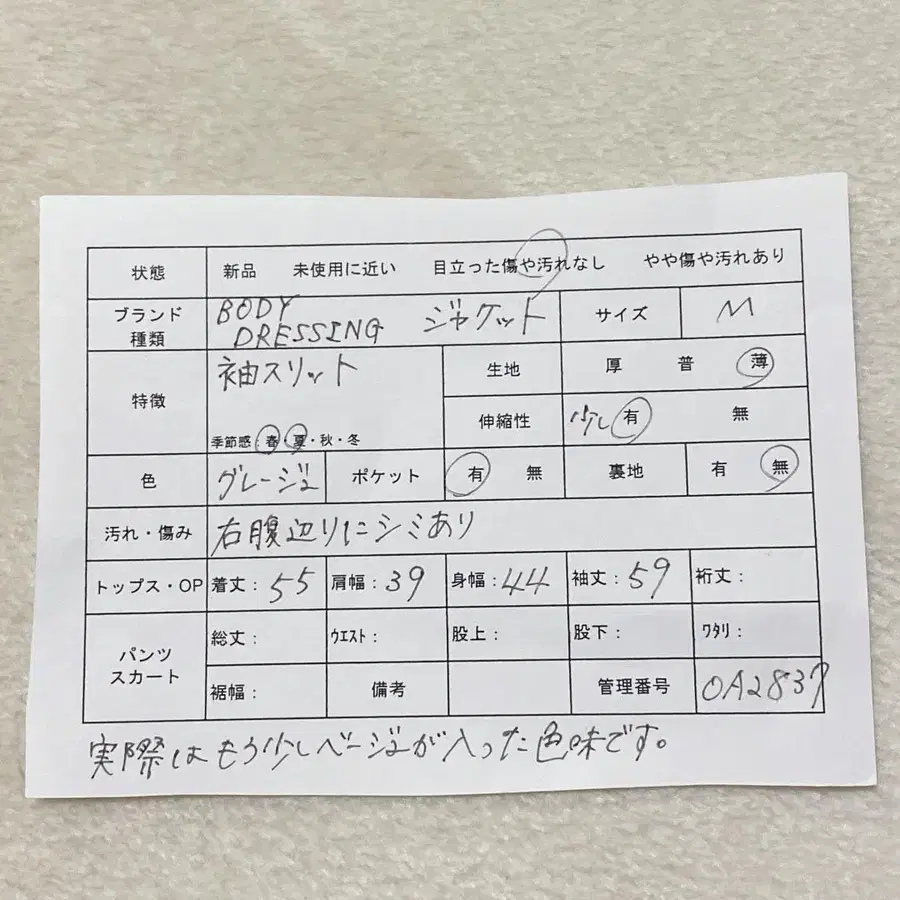 状態 新品 未使用に近い 目立った傷や汚れなし やや傷や汚れあり
ブランド 種類 BODY DRESSING ジャケット サイズ M
特徴 袖スリット 生地 厚 普 薄
季節感:春・夏・秋・冬 伸縮性 少し有 無
色 グレージュ ポケット 有 無 裏地 有 無
汚れ・傷み 右腹辺りにシミあり
トップス・OP 着丈:55 肩幅:39 身幅:44 袖丈:59 裄丈:
パンツ スカート 総丈: ウエスト: 股上: 股下: ワタリ:
裾幅: 備考 管理番号 OA2837
実際はもう少しベージュが入った色味です。